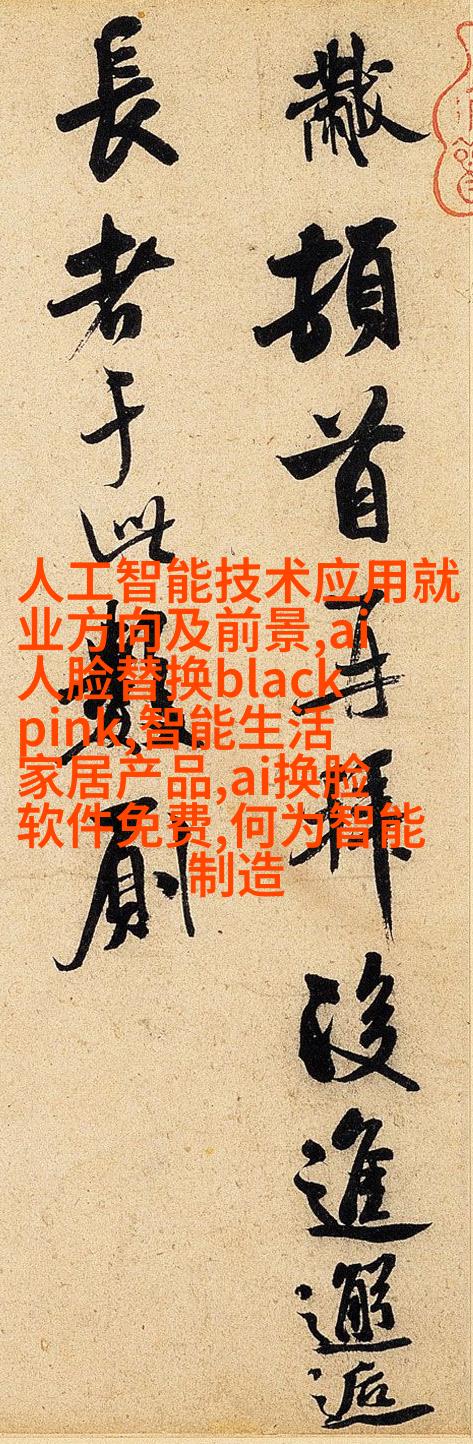 黻頓首再拜後進邂逅
長者于此數厠
人工智能技术应用就
业方向及前景,ai
人脸替换black
pink,智能生活
家居产品,ai换脸
软件免费,何为智能
制造